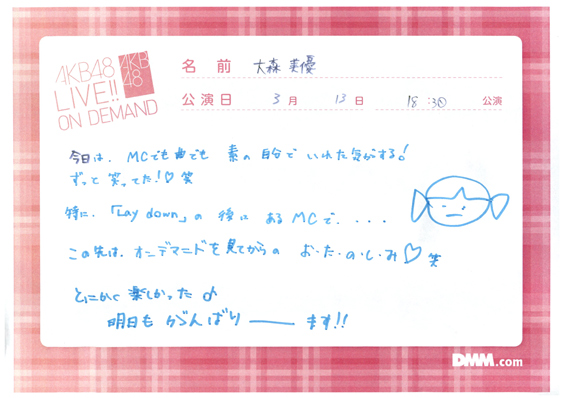 AKB48
LIVE!!
ON DEMAND
AKB
48
名前 大森美優
公演日 3月 13日 18:30 公演
今日は、MCでも曲でも 素の自分で いれた気がする!
ずっと 笑ってた!♡ 笑
特に、「Lay down」の 後に ある MCで、...
この先は、オンデマンドを見てからの お・た・の・し・み♡ 笑
とにかく 楽しかった♪
明日も がんばり――ます!!
DMM.com